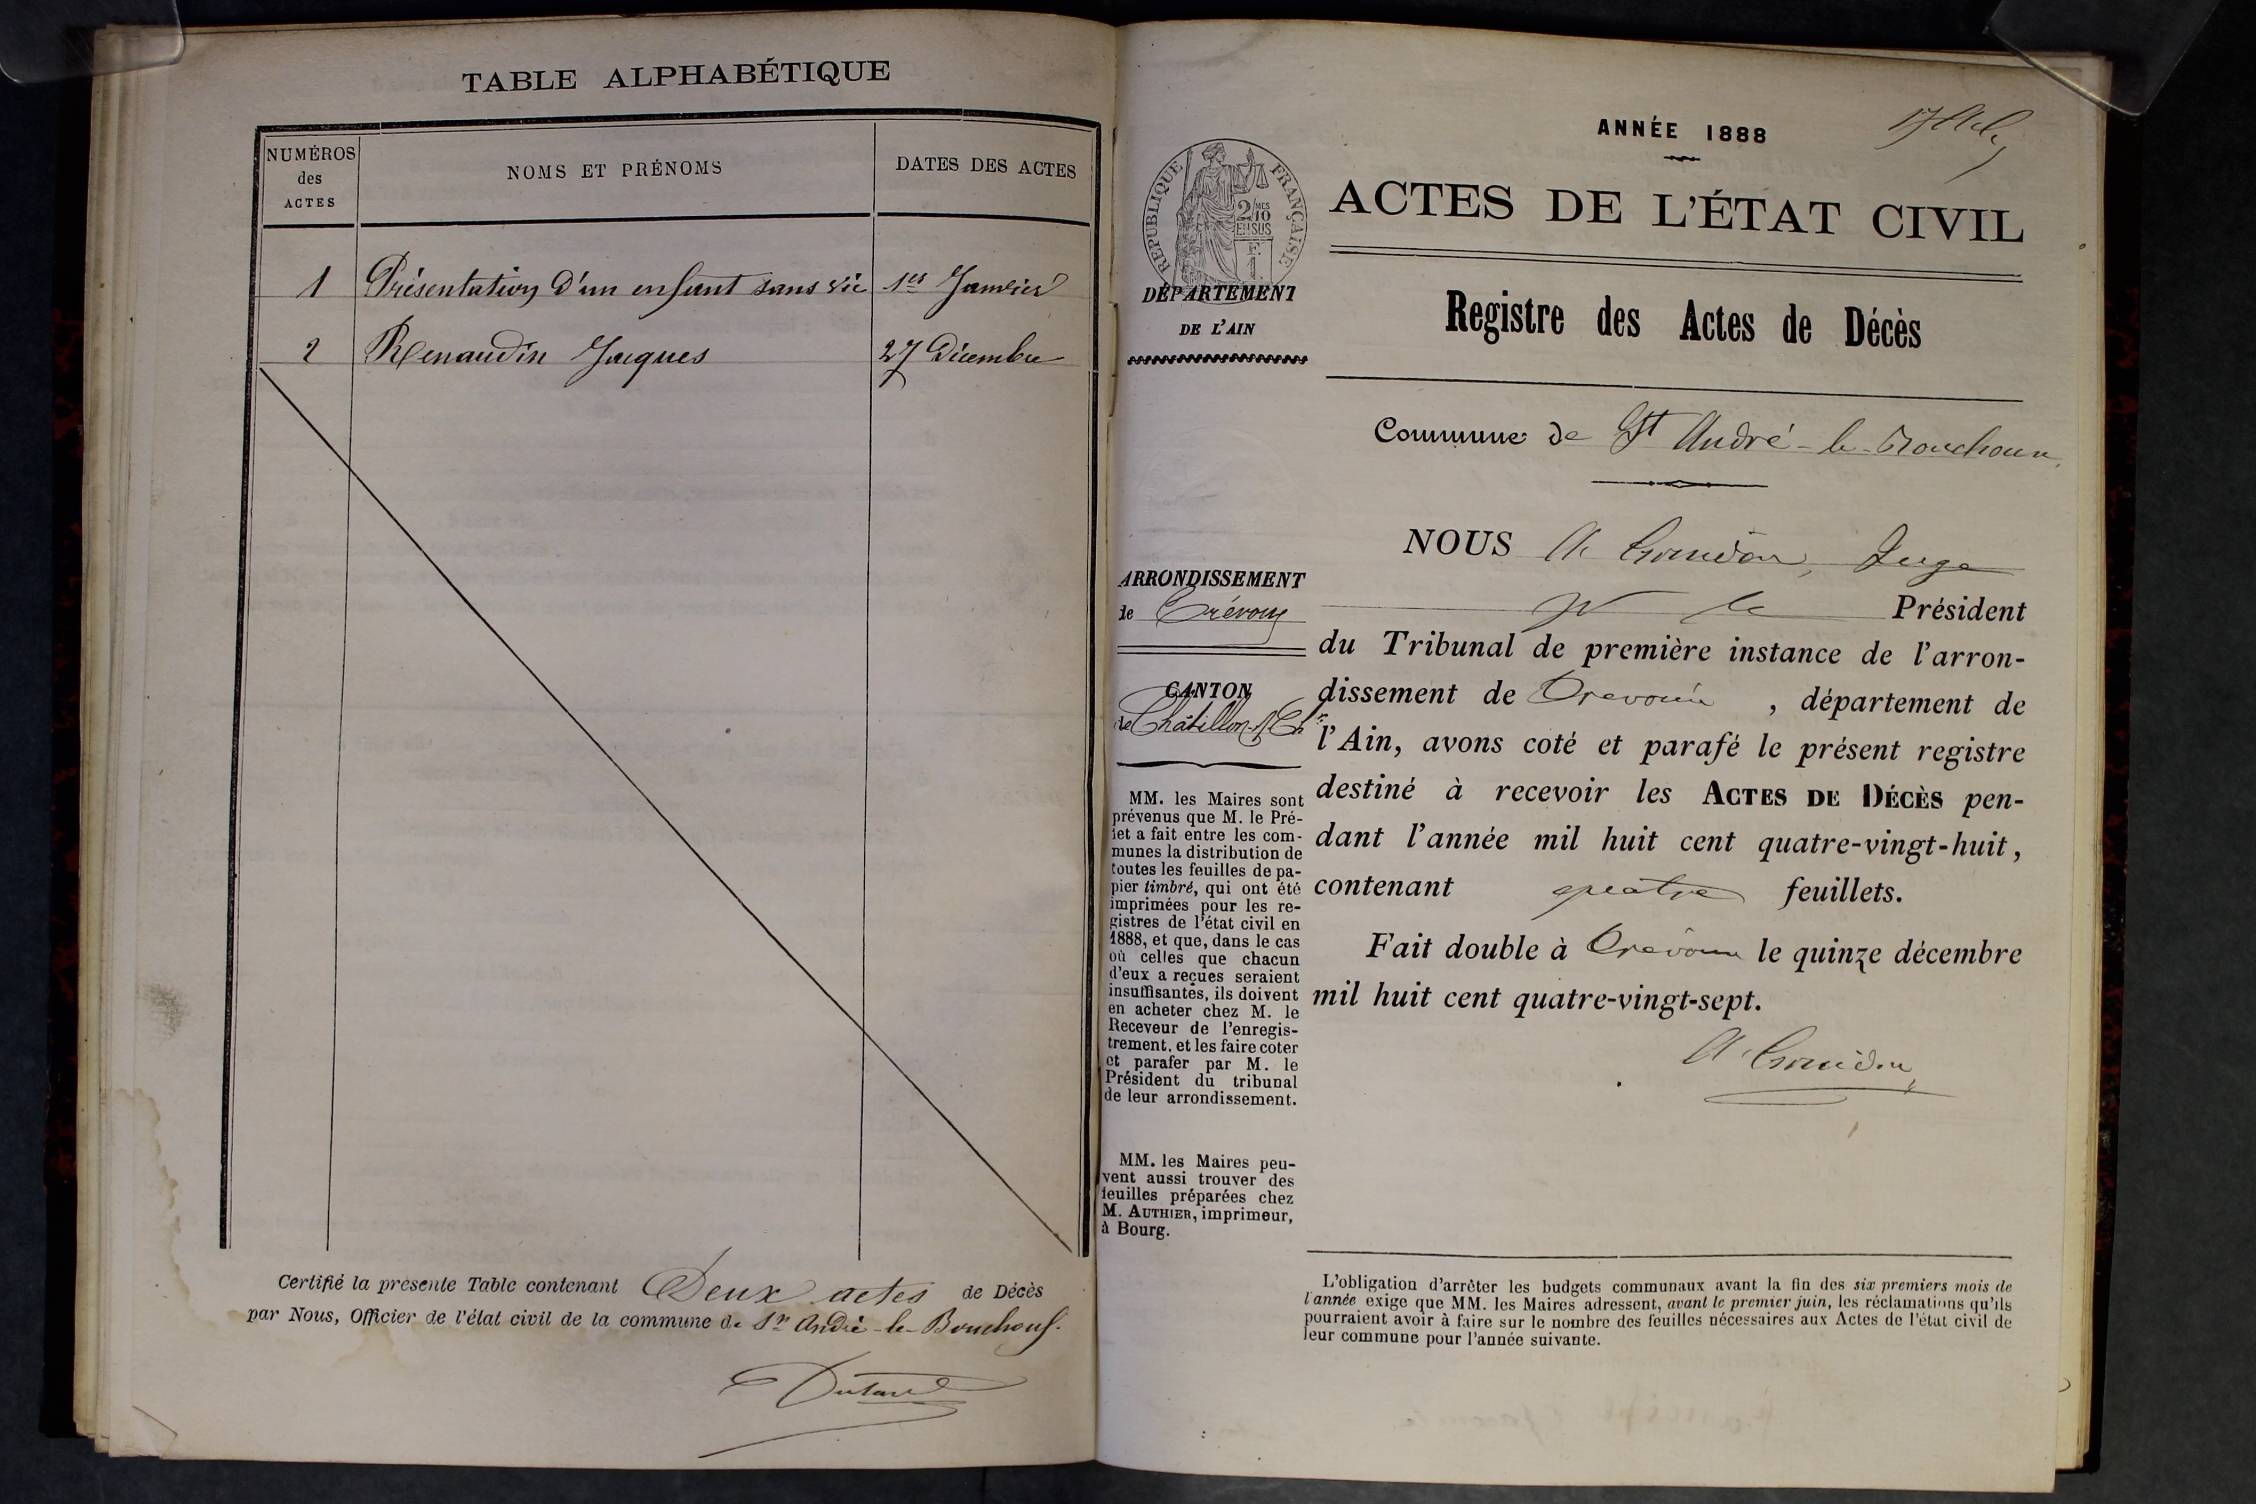 TABLE ALPHABÉTIQUE
NUMÉROS
des
ACTES
NOMS ET PRÉNOMS
DATES DES ACTES
1 Présentation d'un enfant sans vie 1er Janvier
2 Renaudin Jacques 27 Décembre
Certifié la présente Table contenant Deux actes de Décès
par Nous, Officier de l'état civil de la commune de St André-le-Bouchoux.
ANNÉE 1888
RÉPUBLIQUE FRANÇAISE
2/10 MES
EN SUS
F.
1.
ACTES DE L'ÉTAT CIVIL
Registre des Actes de Décès
Commune de St André-le-Bouchoux
DÉPARTEMENT
DE L'AIN
ARRONDISSEMENT
de Trévoux
CANTON
de Châtillon
MM. les Maires sont
prévenus que M. le Pré-
fet a fait entre les com-
munes la distribution de
toutes les feuilles de pa-
pier timbré, qui ont été
imprimées pour les re-
gistres de l'état civil en
1888, et que, dans le cas
où celles que chacun
d'eux a reçues seraient
insuffisantes, ils doivent
en acheter chez M. le
Receveur de l'enregis-
trement, et les faire coter
et parafer par M. le
Président du tribunal
de leur arrondissement.
MM. les Maires peu-
vent aussi trouver des
feuilles préparées chez
M. AUTHIER, imprimeur,
à Bourg.
NOUS A. Juge
Président
du Tribunal de première instance de l'arron-
dissement de Trévoux, département de
l'Ain, avons coté et parafé le présent registre
destiné à recevoir les ACTES DE DÉCÈS pen-
dant l'année mil huit cent quatre-vingt-huit,
contenant quatre feuillets.
Fait double à Trévoux le quinze décembre
mil huit cent quatre-vingt-sept.
L'obligation d'arrêter les budgets communaux avant la fin des six premiers mois de
l'année exige que MM. les Maires adressent, avant le premier juin, les réclamations qu'ils
pourraient avoir à faire sur le nombre des feuilles nécessaires aux Actes de l'état civil de
leur commune pour l'année suivante.